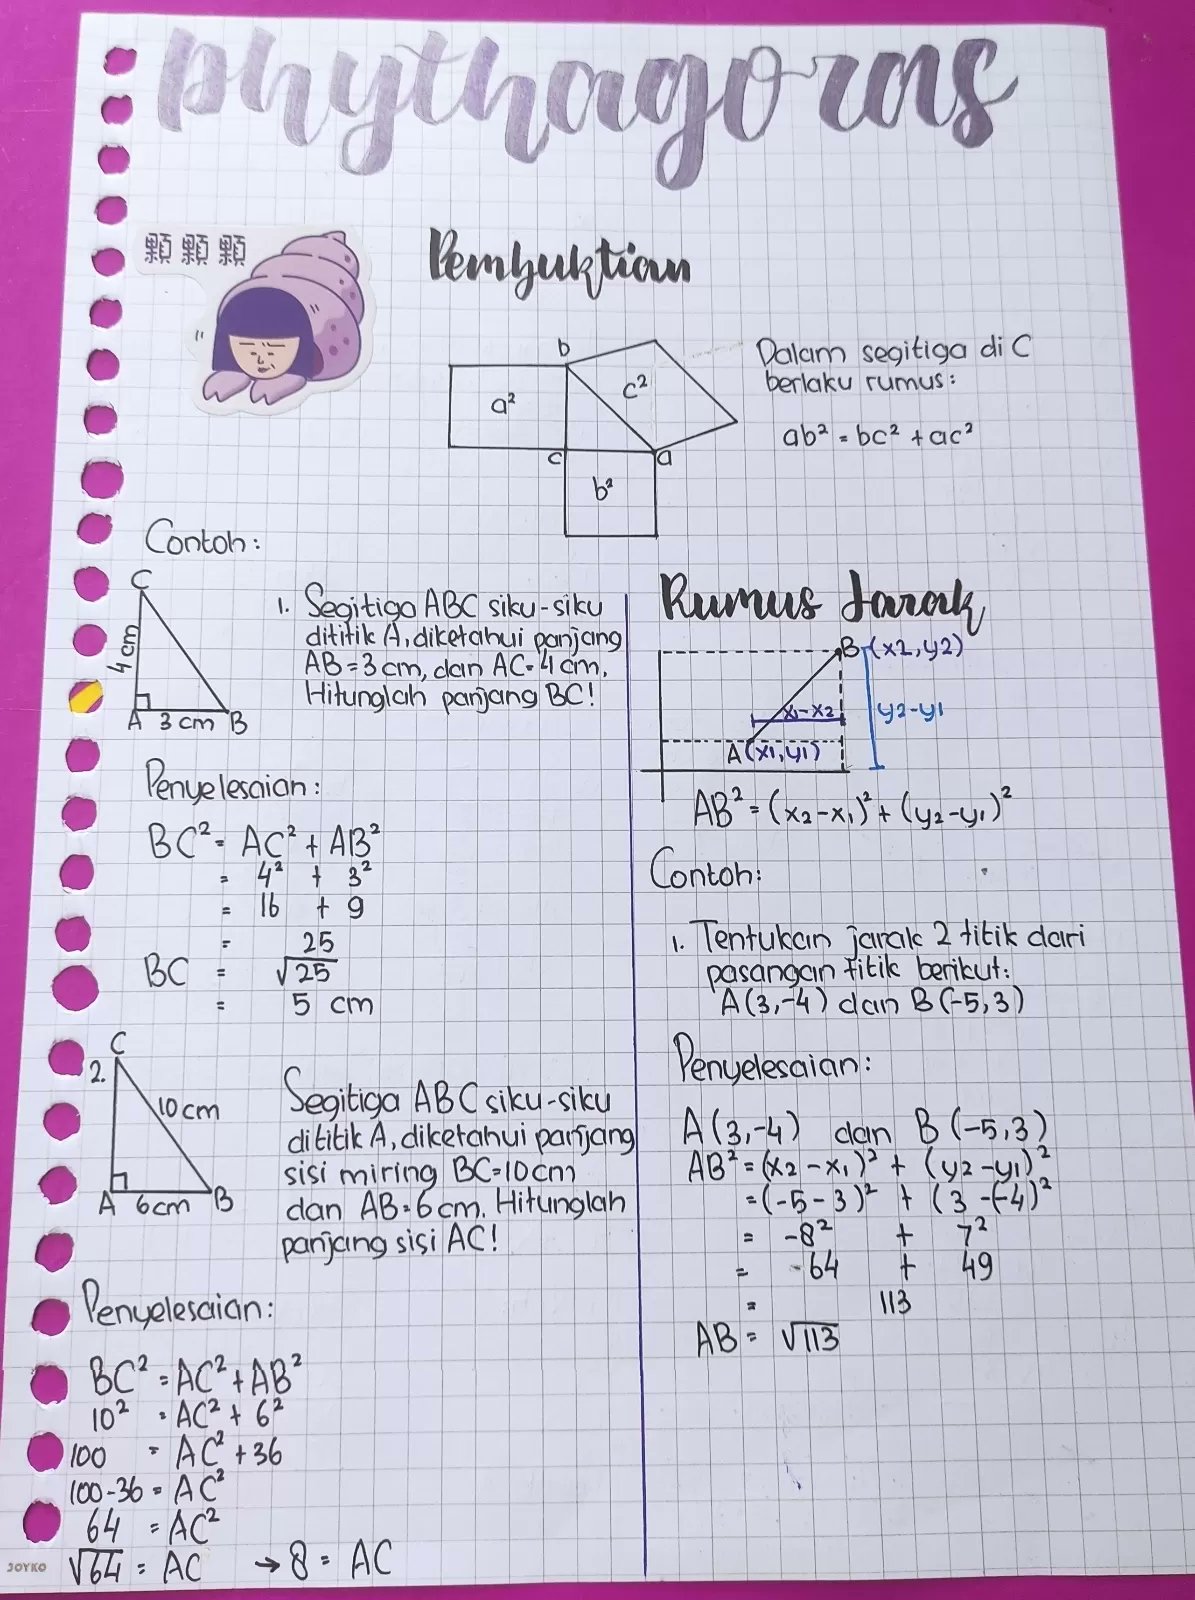 phythagoras
顆顆顆
Pembuktian
b
a²
c²
c
a
b²
Dalam segitiga di C
berlaku rumus:
ab² = bc² + ac²
Contoh:
C
4 cm
A 3 cm B
1. Segitiga ABC siku-siku
dititik A, diketahui panjang
AB = 3 cm, dan AC = 4 cm.
Hitunglah panjang BC!
Penyelesaian:
BC² = AC² + AB²
= 4² + 3²
= 16 + 9
= 25
BC = √25
= 5 cm
C
2.
10 cm
A 6cm B
Segitiga ABC siku-siku
dititik A, diketahui panjang
sisi miring BC = 10 cm
dan AB = 6 cm. Hitunglah
panjang sisi AC!
Penyelesaian:
BC² = AC² + AB²
10² = AC² + 6²
100 = AC² + 36
100-36 = AC²
64 = AC²
√64 = AC → 8 = AC
Rumus Jarak
B (x2, y2)
x1-x2
y2-y1
A (x1, y1)
AB² = (x2-x1)² + (y2-y1)²
Contoh:
1. Tentukan jarak 2 titik dari
pasangan titik berikut:
A(3,-4) dan B(-5,3)
Penyelesaian:
A(3,-4) dan B(-5,3)
AB² = (x2-x1)² + (y2-y1)²
= (-5-3)² + (3-(-4)²
= -8² + 7²
= -64 + 49
= 113
AB = √113
JOYKO